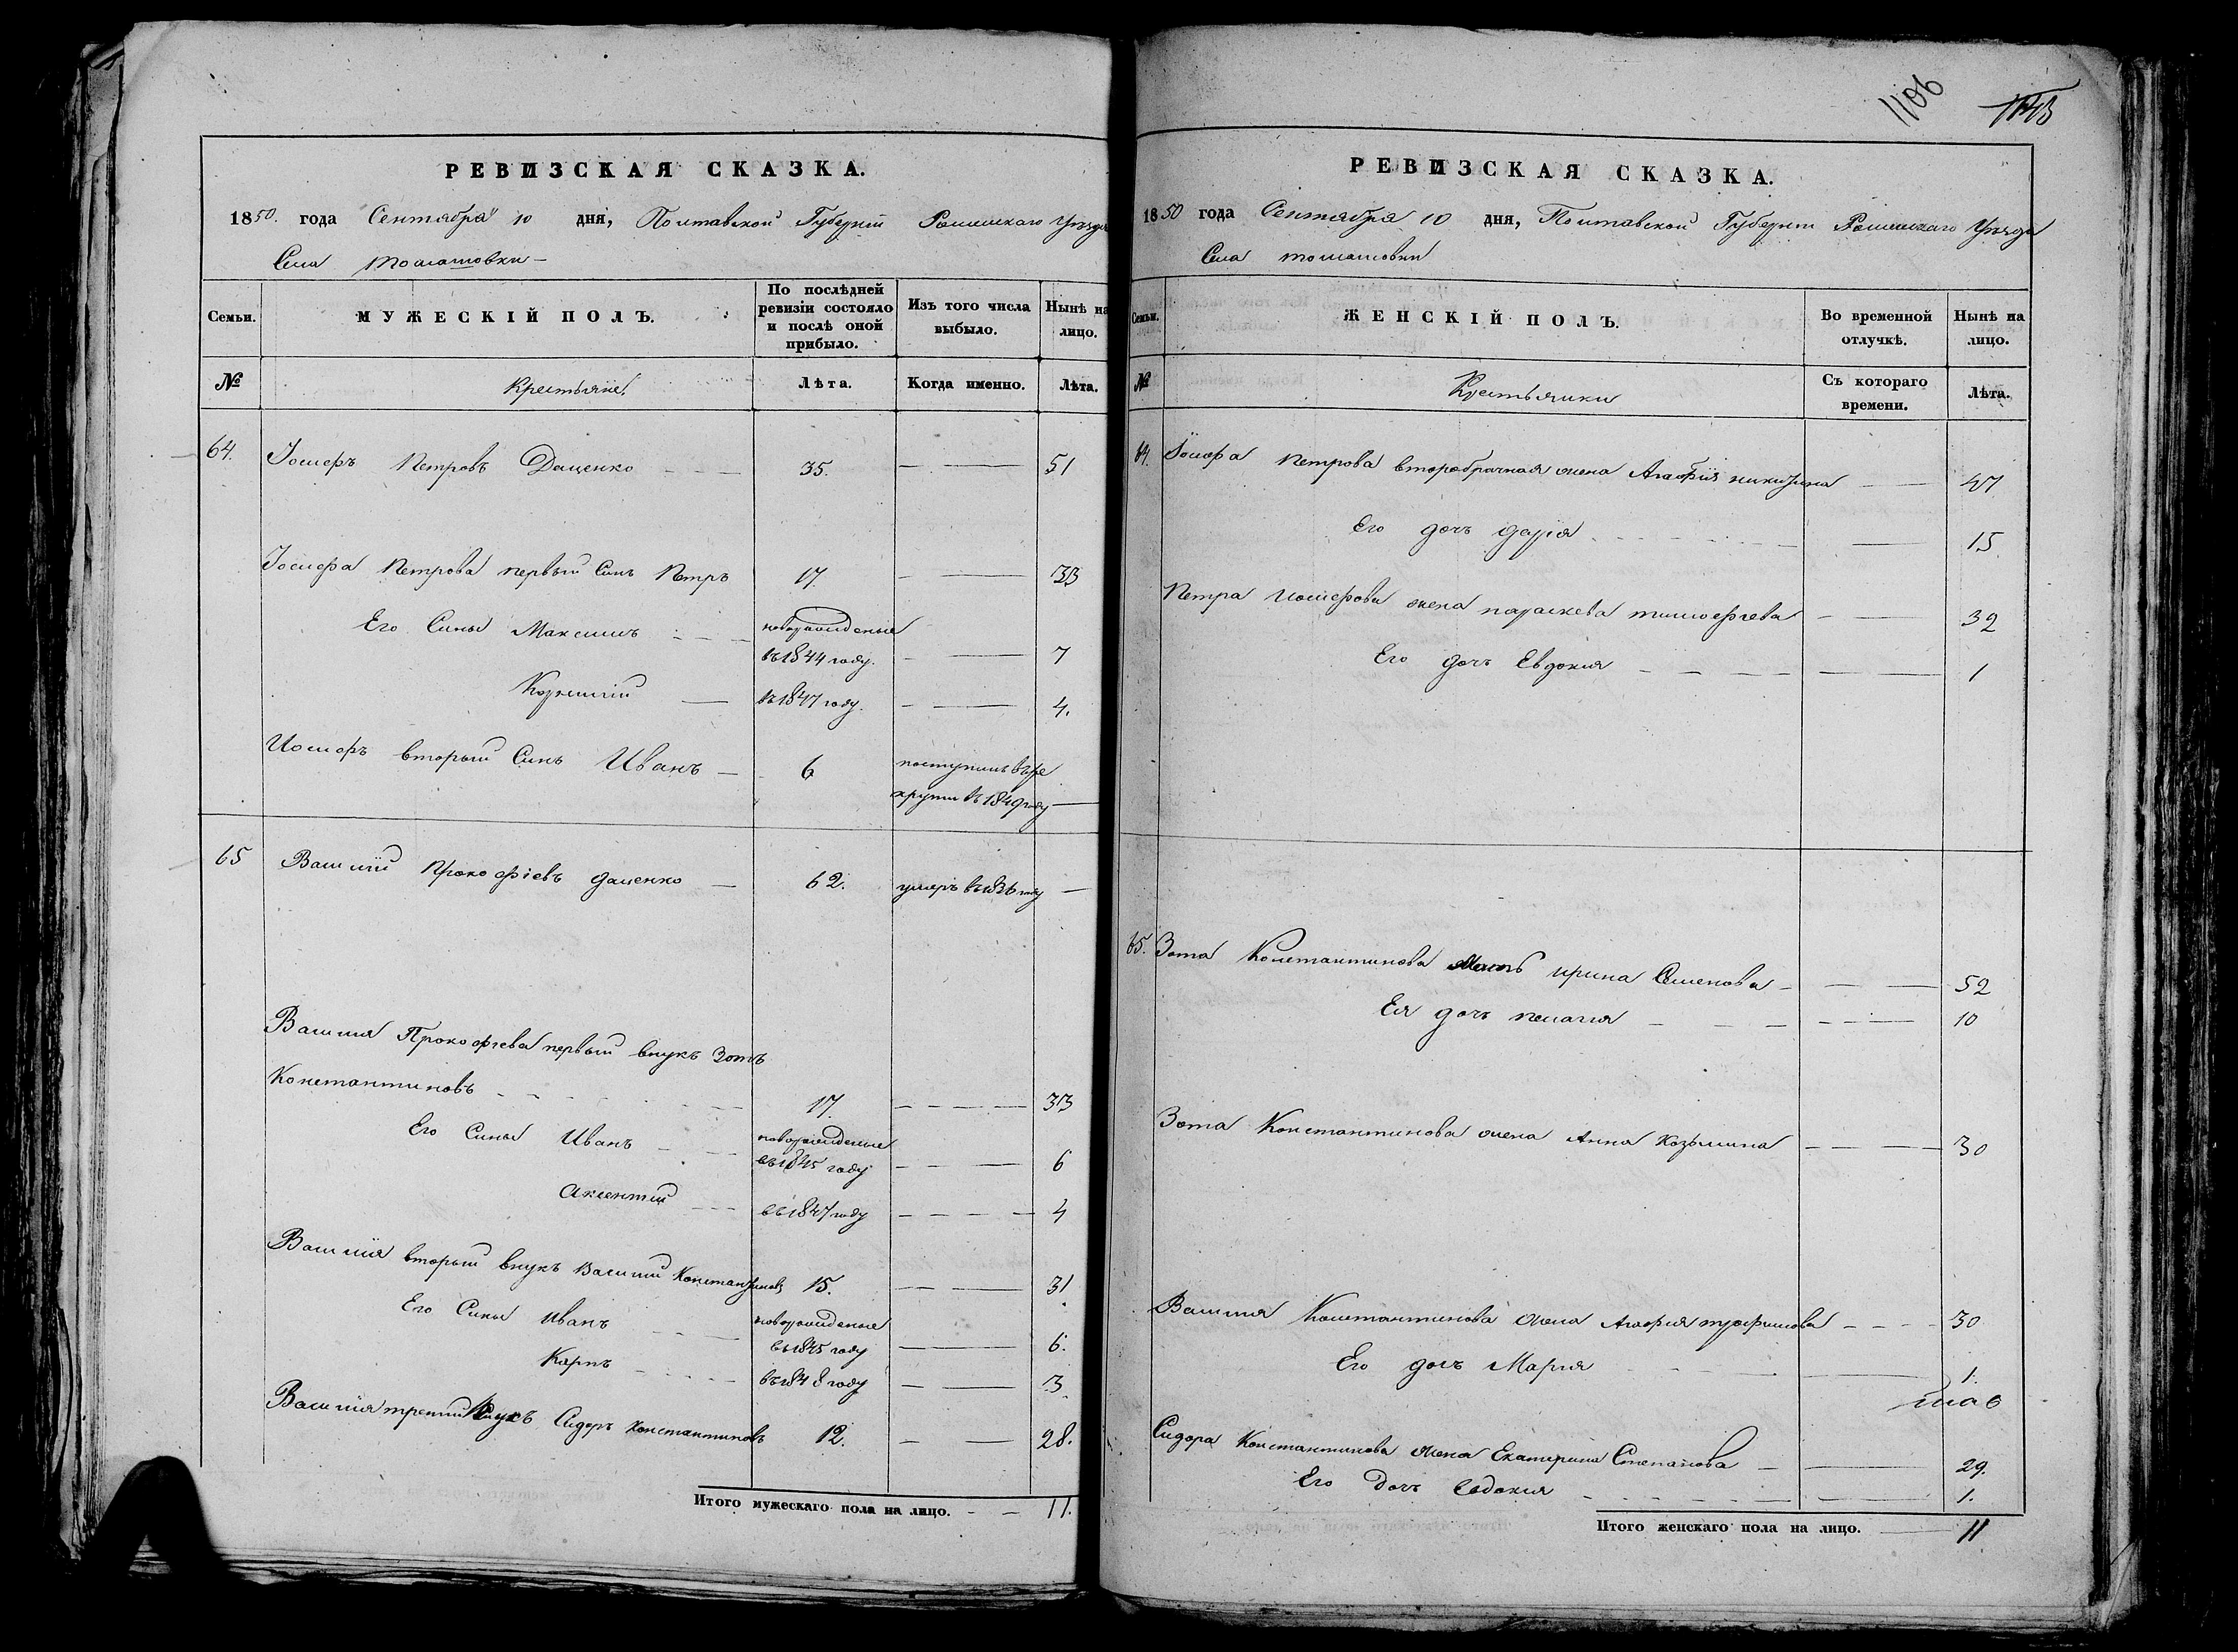 РЕВИЗСКАЯ СКАЗКА.
1850. года Сентября 10 дня, Полтавской Губернiи Роменскаго Уезда
Села Томашовки
Семьи.
МУЖЕСКІЙ ПОЛЪ.
По послѣдней ревизіи состояло и послѣ оной прибыло.
Изъ того числа выбыло.
Нынѣ на лицо.
№
Крестьяне.
Лѣта.
Когда именно.
Лѣта.
64. Іосифъ Петровъ Даценко 35. 51
Іосифа Петрова первый Синъ Петръ 17. 33
Его Сины Максимъ новорожденые въ 1844 году. 7
Корнилiй въ 1847 году. 4.
Иосифъ вторый Синъ Иванъ 6 поступилъ въ рекрути въ 1849 году
65 Василiй Прокофіевъ даценко 62. умеръ въ 1836 году
Василия Прокофiева первый внукъ Зотъ
Константиновъ 17. 33
Его Сины Иванъ новорожденые въ 1845 году 6
Аксентий въ 1847 году 4
Василiя вторый внукъ Василий Константиновъ 15. 31
Его Сины Иванъ новорожденые въ 1845 году 6.
Карпъ въ 1848 году 3
Василия третий Внукъ Сидоръ Константиновъ 12. 28.
Итого мужескаго пола на лицо. 11.
1106
1143
РЕВИЗСКАЯ СКАЗКА.
1850 года Сентября 10 дня, Полтавской Губернiи Роменскаго Уезда
Села томашовки
Семьи.
ЖЕНСКІЙ ПОЛЪ.
Во временной отлучкѣ.
Нынѣ на лицо.
№
Крестьянки
Съ котораго времени.
Лѣта.
64. Іосифа петрова второбрачная жена Агафiя никитина 47
Его дочъ дарiя 15
Петра Иосифова жена параскева тимофiева 32
Его дочъ Евдокия 1
65. Зота Константинова Мать ирина Семенова 52
Ея дочъ пелагия 10
Зота Константинова жена Анна козьмина 30
Василия Константинова жена Агафия трофимова 30
Его дочъ Мария 1.
Сидора Константинова жена Екатерина Степанова 29.
Его Дочъ Евдокия 1.
Итого женскаго пола на лицо. 11